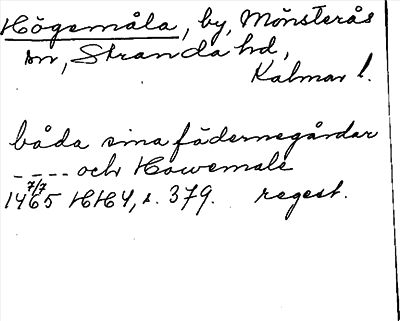 Högemåla, by, Mönsterås
sn, Stranda hd,
Kalmar l.
båda sina fädernegårdar
---- och Howemale
7/7
1465 HH4, s. 379. regest.